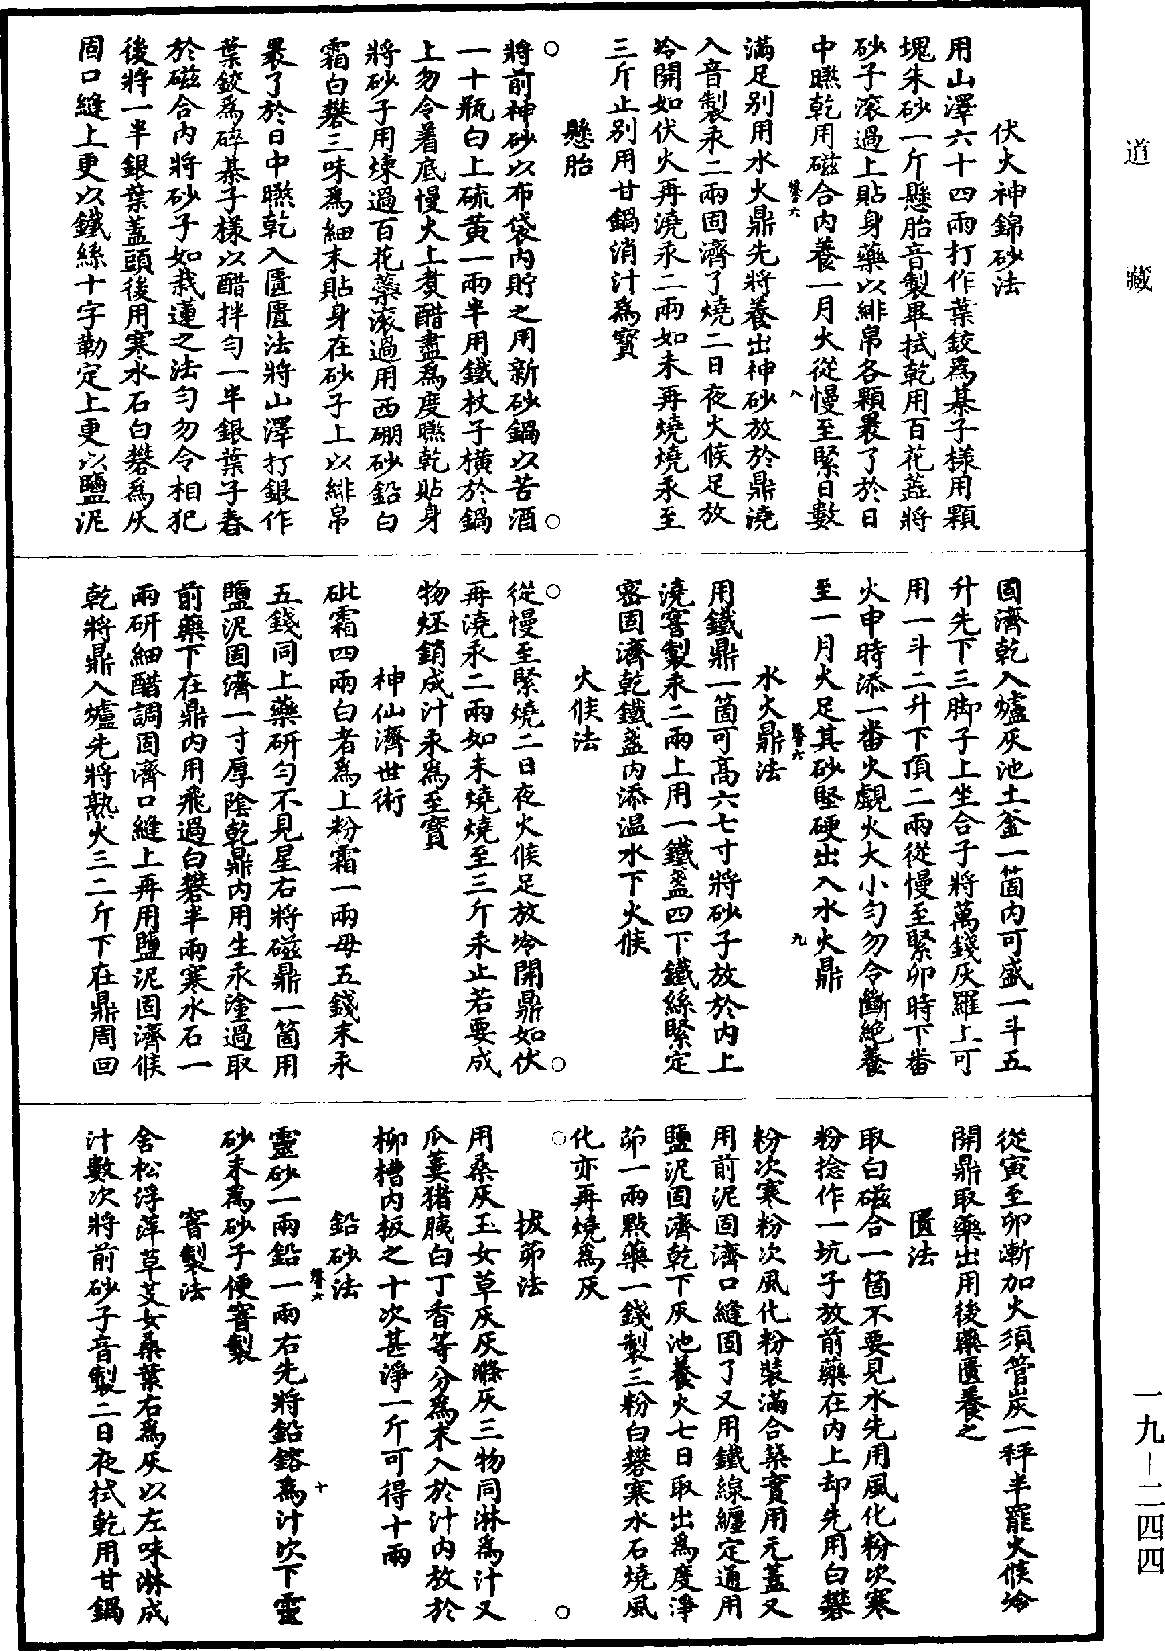 道藏
一九—二四四
伏火神錦砂法
用山澤六十四兩打作葉鉸爲碁子樣用顆
塊朱砂一斤懸胎音製畢拭乾用百花蕋將
砂子滚過上貼身藥以緋帛各顆褁了於日
中㬠乾用磁合内養一月火從慢至緊日數
滿足别用水火鼎先將養出神砂放於鼎澆
入音製汞二兩固濟了燒二日夜火候足放
冷開如伏火再澆汞二兩如未再燒燒汞至
三斤止别用甘鍋消汁爲寳
懸胎
將前神砂以布袋内貯之用新砂鍋以苦酒
一十瓶白上硫黄一兩半用鐵杖子横於鍋
上勿令着底慢火上煑醋盡爲度㬠乾貼身
將砂子用煉過百花藥滚過用西硼砂鉛白
霜白礬三味爲細末貼身在砂子上以緋帛
褁了於日中㬠乾入匱匱法將山澤打銀作
葉鉸爲碎碁子樣以醋拌勻一半銀葉子舂
於磁合内將砂子如栽蓮之法勻勿令相犯
後將一半銀葉蓋頭後用寒水石白礬爲灰
固口縫上更以鐵絲十字勒定上更以鹽泥
固濟乾入爐灰池土釜一箇内可盛一斗五
升先下三脚子上坐合子將萬錢灰羅上可
用一斗二升下頂二兩從慢至緊卯時下番
火申時添一番火觑火大小勻勿令斷絶養
至一月火足其砂堅硬出入水火鼎
水火鼎法
用鐵鼎一箇可高六七寸將砂子放於内上
澆窨製汞二兩上用一鐵盞四下鐵絲緊定
宻固濟乾鐵盞内添温水下火候
火候法
從慢至緊燒二日夜火候足放冷開鼎如伏
再澆汞二兩如未燒燒至三斤汞止若要成
物烴銷成汁汞爲至寳
神仙濟世術
砒霜四兩白者爲上粉霜一兩母五錢末汞
五錢同上藥研勻不見星右將磁鼎一箇用
鹽泥固濟一寸厚陰乾鼎内用生汞塗過取
前藥下在鼎内用飛過白礬半兩寒水石一
兩研細醋調固濟口縫上再用鹽泥固濟候
乾將鼎入爐先將熟火三二斤下在鼎周回
從寅至卯漸加火須管炭一秤半罷火候冷
開鼎取藥出用後藥匱養之
匱法
取白磁合一箇不要見水先用風化粉次寒
粉捻作一坑子放前藥在内上却先用白礬
粉次寒粉次風化粉裝滿合築實用元蓋又
用前泥固濟口縫固了又用鐵線纏定通用
鹽泥固濟乾下灰池養火七日取出爲度淨
茆一兩㸃藥一錢製三粉白礬寒水石燒風
化亦再燒爲灰
拔茆法
用桑灰玉女草灰灰滌灰三物同淋爲汁又
瓜蔞猪胰白丁香等分爲末入於汁内放於
柳槽内板之十次甚淨一斤可得十兩
鉛砂法
靈砂一兩鉛一兩右先將鉛鎔爲汁次下靈
砂末爲砂子便窨製
窨製法
舍松浮萍草芰女桑葉右爲灰以左味淋成
汁數次將前砂子音製二日夜拭乾用甘鍋